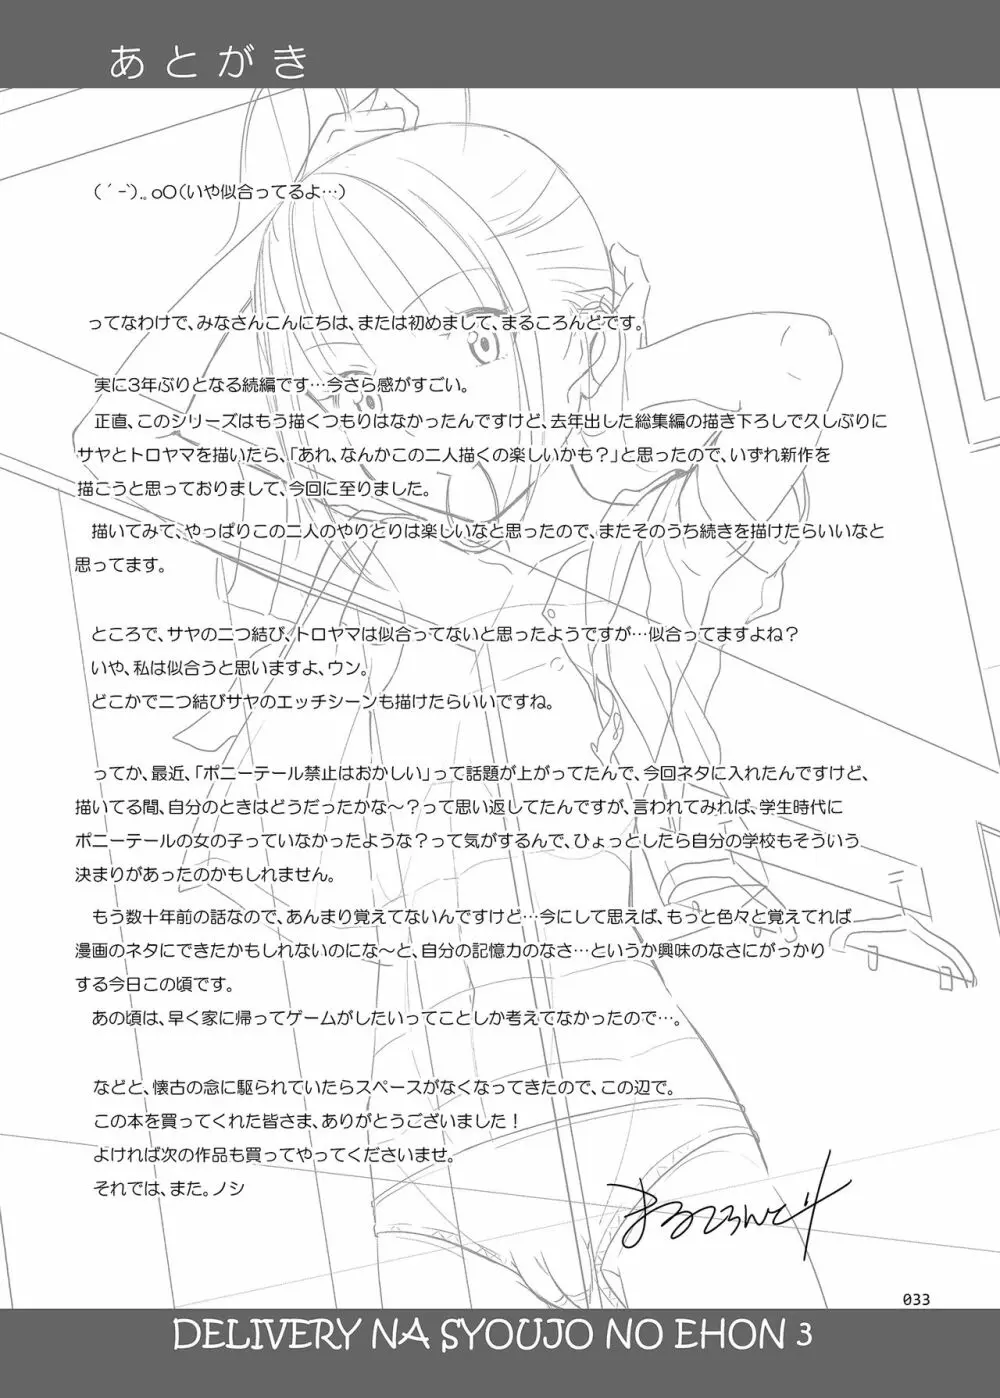 あとがき
（ ´ -`）.｡oO（いや似合ってるよ…）
ってなわけで、みなさんこんにちは、または初めまして、まるころんどです。
実に3年ぶりとなる続編です…今さら感がすごい。
正直、このシリーズはもう描くつもりはなかったんですけど、去年出した総集編の描き下ろしで久しぶりに
サヤとトロヤマを描いたら、「あれ、なんかこの二人描くの楽しいかも？」と思ったので、いずれ新作を
描こうと思っておりまして、今回に至りました。
描いてみて、やっぱりこの二人のやりとりは楽しいなと思ったので、またそのうち続きを描けたらいいなと
思ってます。
ところで、サヤの二つ結び、トロヤマは似合ってないと思ったようですが…似合ってますよね？
いや、私は似合うと思いますよ、ウン。
どこかで二つ結びサヤのエッチシーンも描けたらいいですね。
ってか、最近、「ポニーテール禁止はおかしい」って話題が上がってたんで、今回ネタに入れたんですけど、
描いてる間、自分のときはどうだったかな～？って思い返してたんですが、言われてみれば、学生時代に
ポニーテールの女の子っていなかったような？って気がするんで、ひょっとしたら自分の学校もそういう
決まりがあったのかもしれません。
もう数十年前の話なので、あんまり覚えてないんですけど…今にして思えば、もっと色々と覚えてれば
漫画のネタにできたかもしれないのにな～と、自分の記憶力のなさ…というか興味のなさにがっかり
する今日この頃です。
あの頃は、早く家に帰ってゲームがしたいってことしか考えてなかったので…。
などと、懐古の念に駆られていたらスペースがなくなってきたので、この辺で。
この本を買ってくれた皆さま、ありがとうございました！
よければ次の作品も買ってやってくださいませ。
それでは、また。ノシ
まるころんど
033
DELIVERY NA SYOUJO NO EHON 3